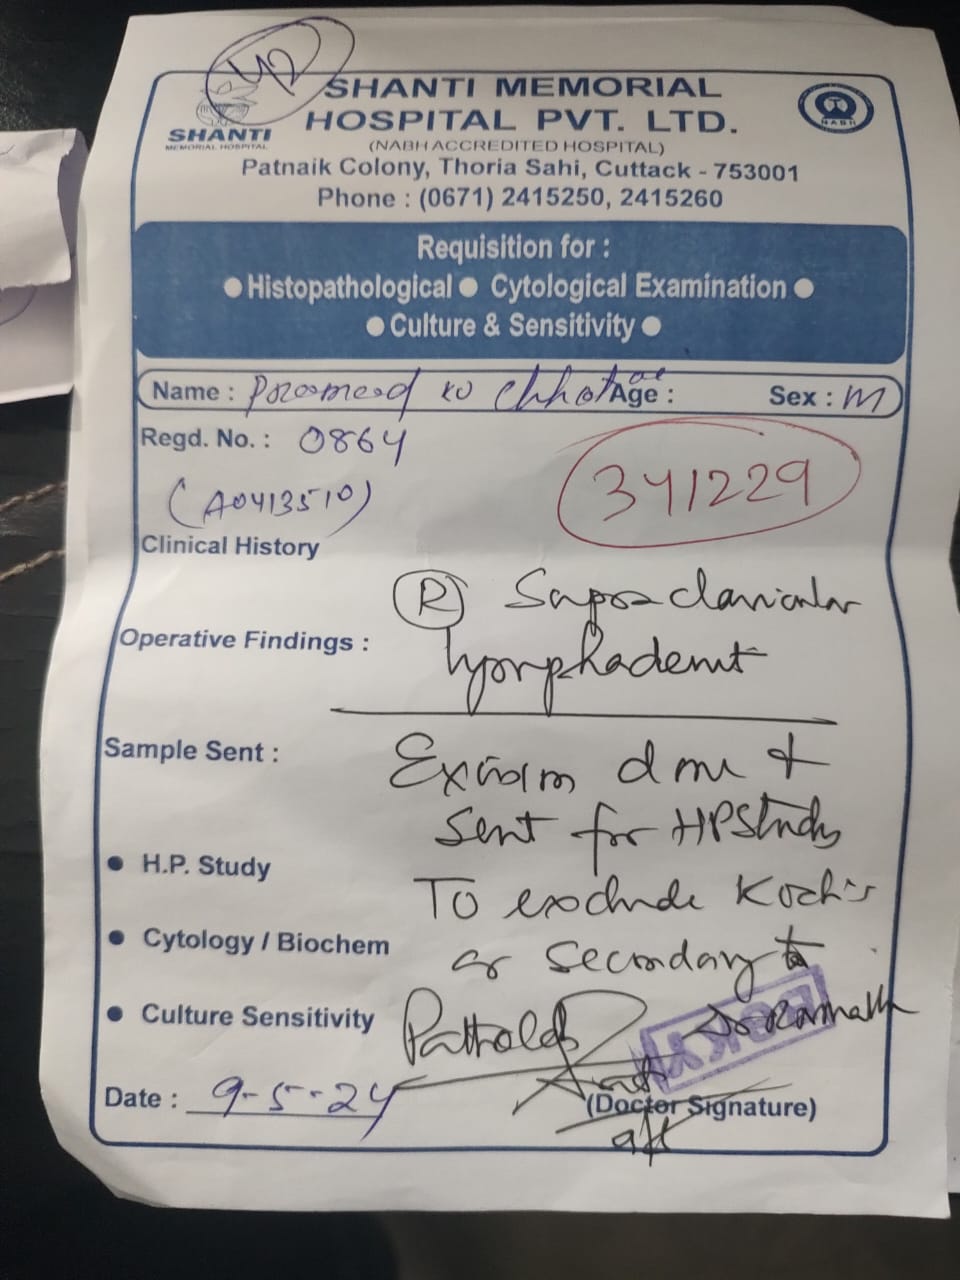 42
SHANTI MEMORIAL
HOSPITAL PVT. LTD.
SHANTI
MEMORIAL HOSPITAL
NABH
(NABH ACCREDITED HOSPITAL)
Patnaik Colony, Thoria Sahi, Cuttack - 753001
Phone : (0671) 2415250, 2415260
Requisition for :
● Histopathological ● Cytological Examination ●
● Culture & Sensitivity ●
Name : Age : Sex : M
Regd. No. : 0864
(A0413510)
341229
Clinical History
(R) Supraclavicular
Operative Findings :
Sample Sent :
Excision done &
sent for HP Study
● H.P. Study
To exclude Koch's
● Cytology / Biochem
or secondary
● Culture Sensitivity
Date : 9-5-24
(Doctor Signature)